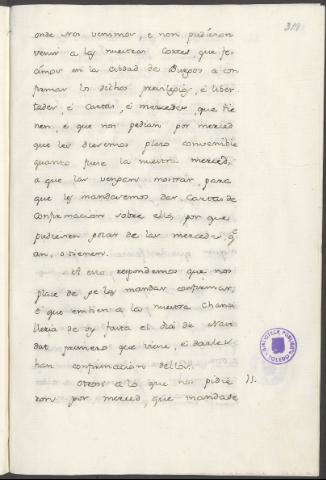 319.
onde Nos venimos, e non pudieron
venir a las nuestras Cortes que fe-
cimos en la cibdad de Burgos a con
firmar los dichos previlegios, é liber
tades, é cartas, é mercedes, que tie
nen é que nos pedian por merced
que les diesemos plazo convenible
quanto fuese la nuestra merced,
a que las vengan mostrar, para
que les mandaremos dar Cartas de
confirmacion sobre ello, por que
pudiesen gosar de las mercedes, q.e
an, o tienen.
A esto respondemos que nos
place de ge los mandar confirmar,
é que embien a la nuestra Chanci
lleria de oy fasta el dia de Navi
dat primero que viene, é darles
han confirmacion dellos.
Otrosi a lo que nos pidie 11.
ron por merced, que mandase
BIBLIOTECA PUBLICA
TOLEDO